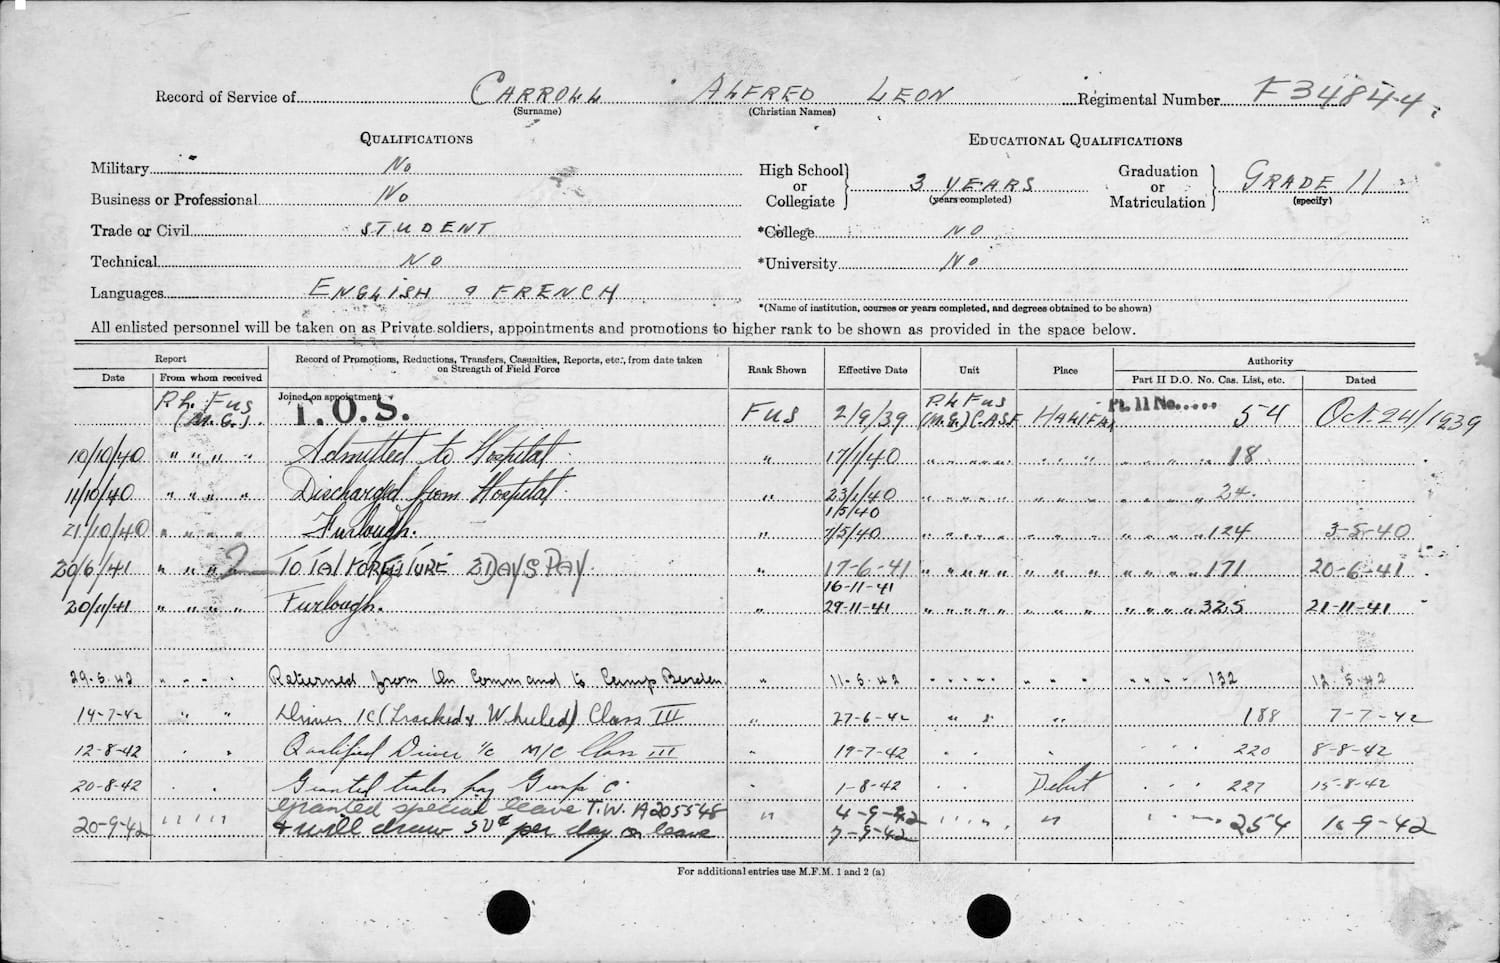 Record of Service of CARROLL ALFRED LEON Regimental Number F34844
(Surname) (Christian Names)
QUALIFICATIONS EDUCATIONAL QUALIFICATIONS
Military No High School or Collegiate 3 YEARS (years completed) Graduation or Matriculation GRADE 11 (specify)
Business or Professional No
Trade or Civil STUDENT *College NO
Technical NO *University No
Languages ENGLISH & FRENCH
*(Name of institution, courses or years completed, and degrees obtained to be shown)
All enlisted personnel will be taken on as Private soldiers, appointments and promotions to higher rank to be shown as provided in the space below.
Report Record of Promotions, Reductions, Transfers, Casualties, Reports, etc., from date taken on Strength of Field Force Rank Shown Effective Date Unit Place Authority
Date From whom received Part II D.O. No. Cas. List, etc. Dated
P.L. Fus (M.G.). Joined on appointment T.O.S. Fus 2/9/39 P L Fus (M.G.) C.A.S.F. HALIFAX Pt. 11 No..... 54 Oct. 24/1939
10/10/40 " " " " Admitted to Hospital " 17/1/40 " " " " " " " " " " " " 18
11/10/40 " " " " Discharged from Hospital " 23/1/40 " " " " " " " " " " " " 24
1/5/40
21/10/40 " " " " Furlough. " 7/5/40 " " " " " " " " " " " " 124 3-5-40
20/6/41 " " " 2 TOTAL FORFEITURE 2 DAYS PAY. " 17-6-41 " " " " " " " " " " " " 171 20-6-41
16-11-41
20/11/41 " " " " Furlough. " 29-11-41 " " " " " " " " " " " " 325 21-11-41
29.5.42 " " " " Returned from On Command to Camp Borden " 11-5-42 " " " " " " " " " " " 132 12.5.42
14-7-42 " " Driver IC (Tracked & Wheeled) Class III " 27-6-42 " " " 188 7-7-42
12-8-42 " " Qualified Driver i/c M/C Class III " 19-7-42 " " " " " " 220 8-8-42
20-8-42 " " Granted trades pay Group C. " 1-8-42 " " Debert " " " 227 15-8-42
granted special leave T.W. A205548 4-9-42
20-9-42 " " " " & will draw 50¢ per day on leave " 7-9-42 " " " " " " " 254 -9-42
For additional entries use M.F.M. 1 and 2 (a)